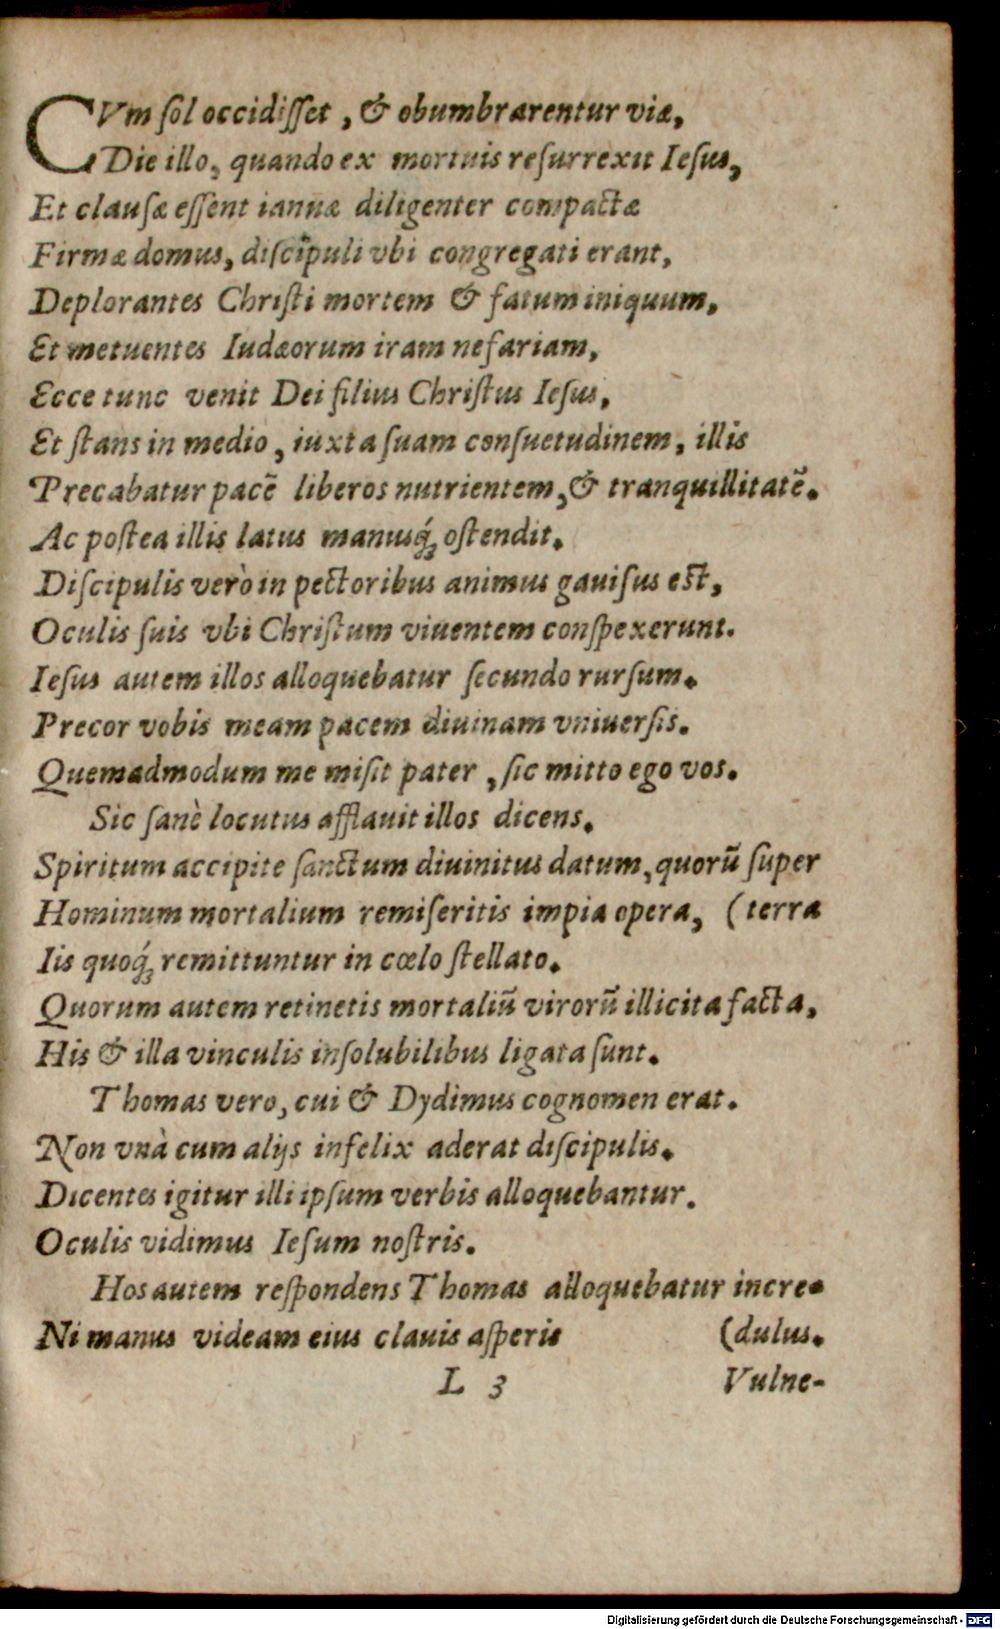 CVm ſol occidiſſet, & obumbrarentur viæ,
Die illo, quando ex mortuis reſurrexit Ieſus,
Et clauſæ eſſent ianuæ diligenter compactæ
Firmæ domus, diſcipuli vbi congregati erant,
Deplorantes Chriſti mortem & fatum iniquum,
Et metuentes Iudæorum iram nefariam,
Ecce tunc venit Dei filius Chriſtus Ieſus,
Et ſtans in medio, iuxta ſuam conſuetudinem, illis
Precabatur pacē liberos nutrientem, & tranquillitatē.
Ac poſtea illis latus manusq́₃ oſtendit.
Diſcipulis verò in pectoribus animus gauiſus eſt,
Oculis ſuis vbi Chriſtum viuentem conſpexerunt.
Ieſus autem illos alloquebatur ſecundo rurſum.
Precor vobis meam pacem diuinam vniuerſis.
Quemadmodum me miſit pater, ſic mitto ego vos.
Sic ſanè locutus afflauit illos dicens.
Spiritum accipite ſanctum diuinitus datum, quorū ſuper
Hominum mortalium remiſeritis impia opera, (terra
Iis quoq́₃ remittuntur in cœlo ſtellato.
Quorum autem retinetis mortaliū virorū illicita facta,
His & illa vinculis inſolubilibus ligata ſunt.
Thomas vero, cui & Dydimus cognomen erat.
Non vnà cum alijs infelix aderat diſcipulis.
Dicentes igitur illi ipſum verbis alloquebantur.
Oculis vidimus Ieſum noſtris.
Hos autem reſpondens Thomas alloquebatur incre-
Ni manus videam eius clauis aſperis (dulus.
L 3 Vulne-
Digitalisierung gefördert durch die Deutsche Forschungsgemeinschaft - DFG